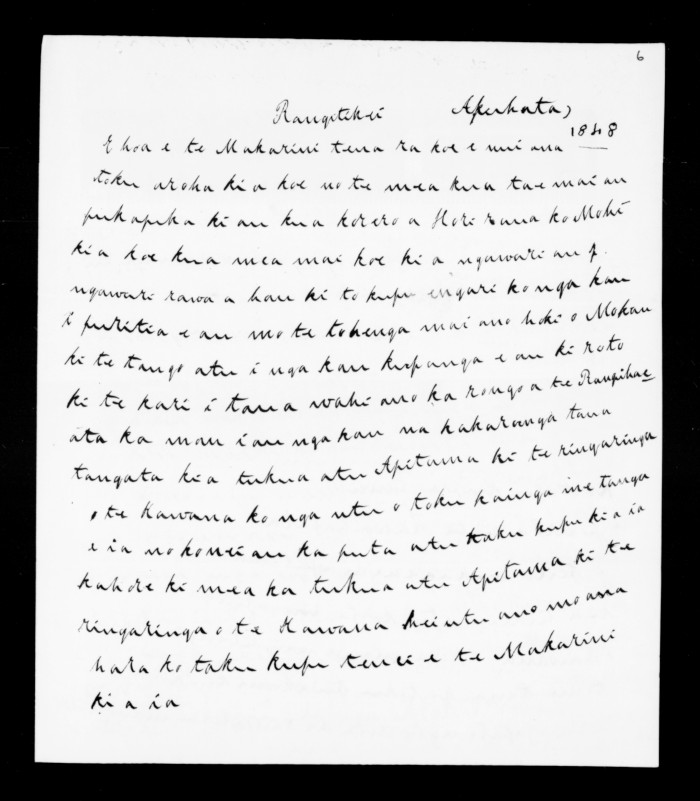 6
Rangitikei Aperhata,
1848
E hoa e te Makarini tena ra koe e nui ana
toku aroha ki a koe no te mea kua tae mai au
pukapuka ki au kua korero a Hori raua ko Mohi
ki a koe kua mea mai koe ki a ngawari au
ngawari rawa a hau ki to kupu engari ko nga kau
i puritia e au mo te tohenga mai ano hoki o Mokau
ki te tango atu i nga kau kupanga e au ki roto
ki te kari i taua wahi ano ka rongo a te Rangihae
ata ka mau i au nga kau na kakaranga taua
tangata kia tukua atu Apitama ki te ringaringa
o te Kawana ko nga utu o toku kainga me tango
e ia no konei au ka puta atu taku kupu ki a ia
kahore ki mea ka tukua atu Apitama ki te
ringaringa o te Kawana hei utu ano mo ana
hara ko taku kupu tenei e te Makarini
ki a ia